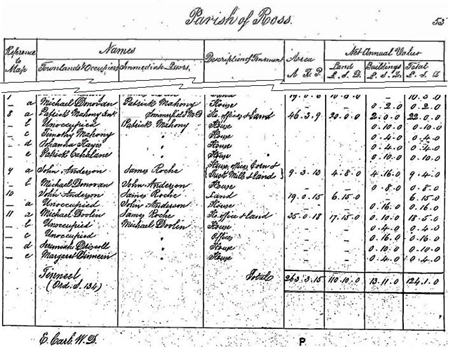 Parish of Ross. 53
Reference to Map Names Description of Tenement Area Net Annual Value
Townlands & Occupiers Immediate Lessors A. R. P. Land £. S. D. Buildings £. S. D. Total £. S. D.
a Michael Donovan Patrick Mahony House 0.2.0 0.2.0
8 a Patrick Mahony Ho. offices & Land 46.3.9 20.0.0 2.0.0 22.0.0
b Unoccupied Patrick Mahony House 0.10.0 0.10.0
c Timothy Mahony House 0.4.0 0.4.0
d Johanna House 0.4.0 0.4.0
e Patrick House 0.10.0 0.10.0
9 a John Anderson James Roche House, offices, Corn & Mills & land 9.3.10 4.8.0 4.16.0 9.4.0
b Michael Donovan John Anderson House 0.8.0 0.8.0
10 John Anderson James Roche Land 19.0.15 6.15.0 6.15.0
a Unoccupied John Anderson House 0.16.0 0.16.0
11 a Michael Doolin James Roche Ho. offices & land 35.0.18 17.15.0 0.10.0 18.5.0
b Unoccupied Michael Doolin House 0.4.0 0.4.0
c Unoccupied Offices 0.16.0 0.16.0
d Jeremiah Driscoll House 0.10.0 0.10.0
e Margaret House 0.4.0 0.4.0
Total 263.3.15 110.10.0 13.11.0 124.1.0
(Ord. S. 134)
E. Carb. W.D.
P